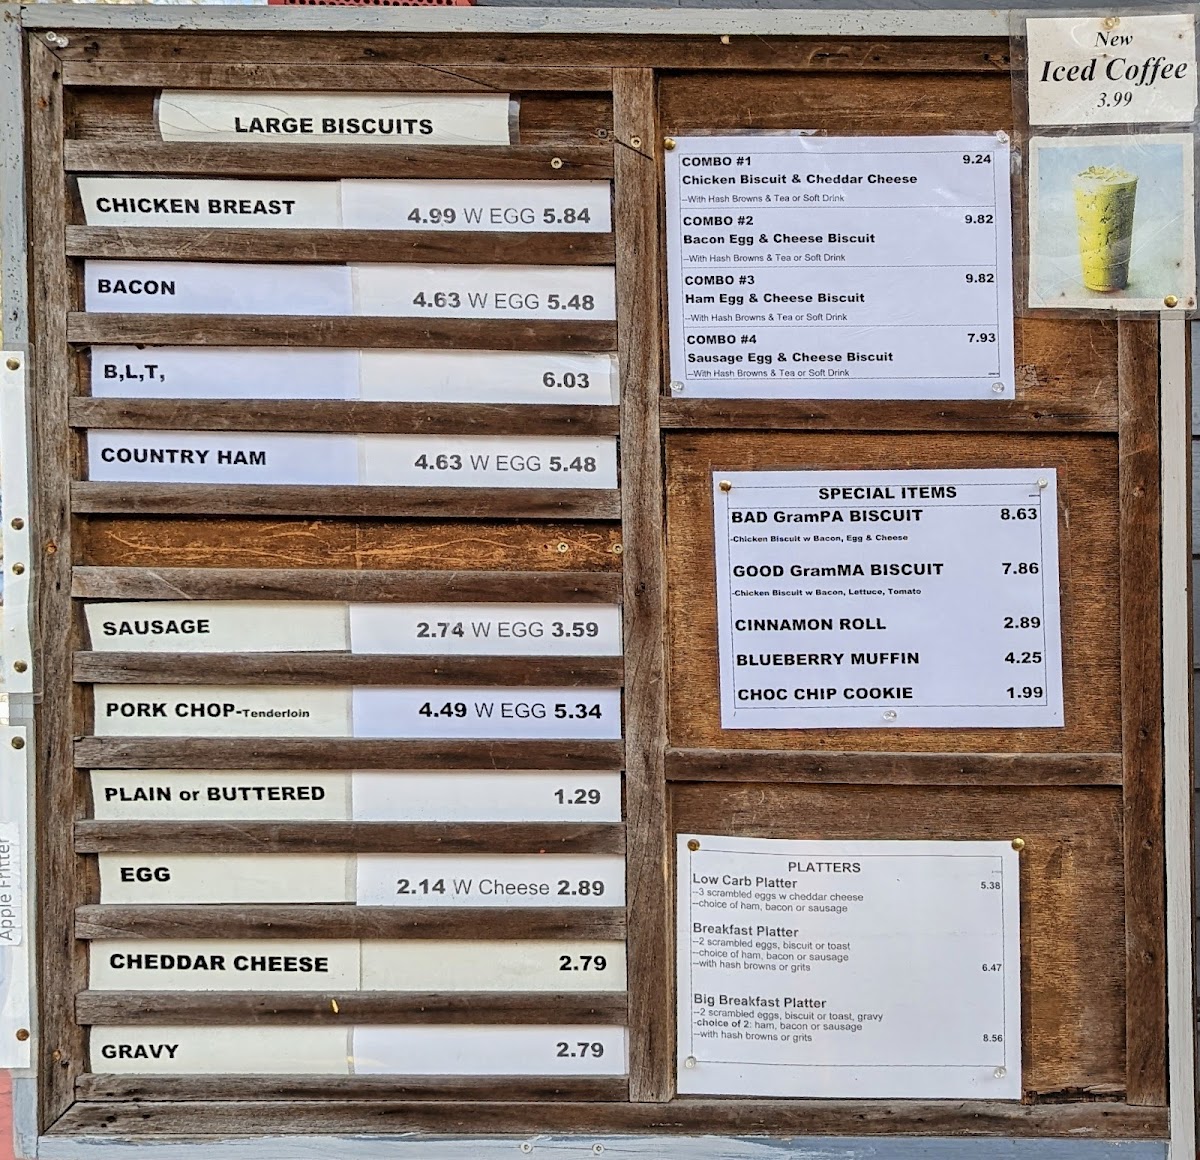 LARGE BISCUITS
CHICKEN BREAST 4.99 W EGG 5.84
BACON 4.63 W EGG 5.48
B,L,T, 6.03
COUNTRY HAM 4.63 W EGG 5.48
SAUSAGE 2.74 W EGG 3.59
PORK CHOP-Tenderloin 4.49 W EGG 5.34
PLAIN or BUTTERED 1.29
EGG 2.14 W Cheese 2.89
CHEDDAR CHEESE 2.79
GRAVY 2.79
COMBO #1 9.24
Chicken Biscuit & Cheddar Cheese
--With Hash Browns & Tea or Soft Drink
COMBO #2 9.82
Bacon Egg & Cheese Biscuit
--With Hash Browns & Tea or Soft Drink
COMBO #3 9.82
Ham Egg & Cheese Biscuit
--With Hash Browns & Tea or Soft Drink
COMBO #4 7.93
Sausage Egg & Cheese Biscuit
--With Hash Browns & Tea or Soft Drink
SPECIAL ITEMS
BAD GramPA BISCUIT 8.63
-Chicken Biscuit w Bacon, Egg & Cheese
GOOD GramMA BISCUIT 7.86
-Chicken Biscuit w Bacon, Lettuce, Tomato
CINNAMON ROLL 2.89
BLUEBERRY MUFFIN 4.25
CHOC CHIP COOKIE 1.99
PLATTERS
Low Carb Platter 5.38
--3 scrambled eggs w cheddar cheese
--choice of ham, bacon or sausage
Breakfast Platter
--2 scrambled eggs, biscuit or toast
--choice of ham, bacon or sausage
--with hash browns or grits 6.47
Big Breakfast Platter
--2 scrambled eggs, biscuit or toast, gravy
-choice of 2: ham, bacon or sausage
--with hash browns or grits 8.56
New
Iced Coffee
3.99
Apple Fritter